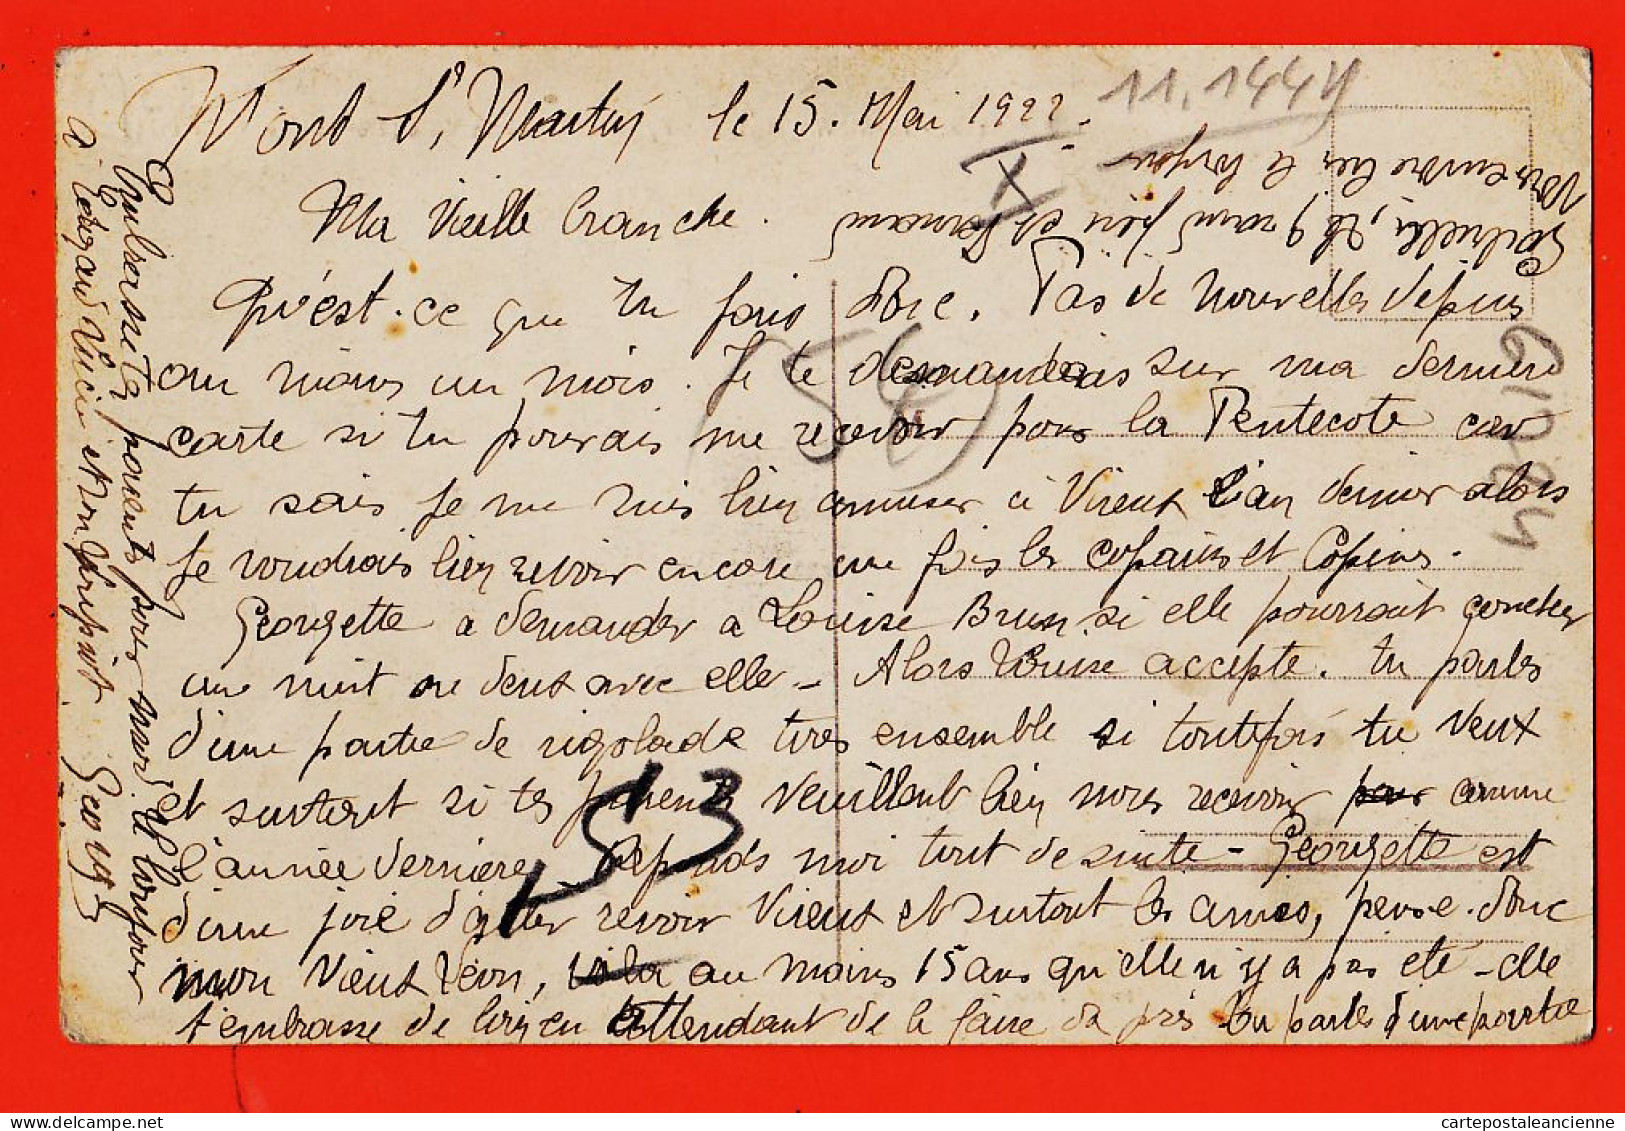 Mont St Martin le 15. Mai 1922.
11.1444
X
Ma Vieille branche.
Qu'est-ce que tu fais donc. Pas de nouvelles depuis
au moins un mois. Je te demandais sur ma dernière
carte si tu pourais me recevoir pour la Pentecote car
tu sais je me suis bien amuser à Vireux l'an dernier alors
je voudrais bien revoir encore une fois les copains et Copines.
Georgette a demander a Louise Brun si elle pourrait coucher
une nuit ou deux avec elle - Alors Louise accepte. tu parles
d'une partie de rigolade tires ensemble si toutefois tu veux
et surtout si tes parents veuillent bien nous recevoir comme
l'année dernière. Reponds moi tout de suite - Georgette est
d'une joie d'aller revoir Vireux et surtout les amies, pense donc
mon vieux Léon, au moins 15 ans qu'elle n'y a pas été - elle
t'embrasse de bien en attendant de le faire de près tu parles d'une partie
Embrasse tes parents pour moi
à Edgard Lucien et Mon Georges
et
54
53
cartepostaleancienne.com